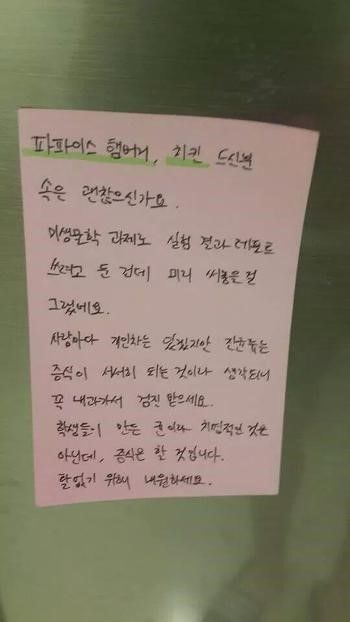 파파이스 햄버거, 치킨 드신분
속은 괜찮으신가요.
미생물학 과제로 실험 결과 레포트
쓰려고 둔 건데 미리 써놓은걸
그랬네요.
사람마다 개인차는 있겠지만 잔균류는
증식이 서서히 되는 것이라 생각되니
꼭 내과가서 검진 받으세요.
학생들이 만든 균이라 치명적인 것은
아닌데, 증식은 할 것입니다.
탈없기 위해 내원하세요.